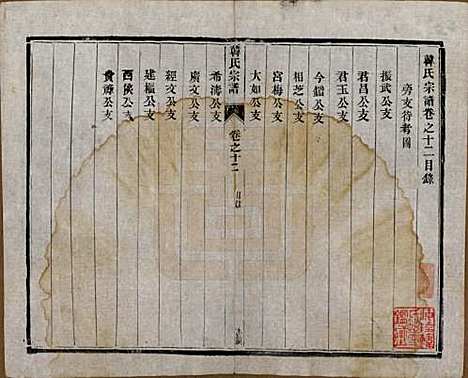 韓氏宗譜卷之十二目錄
旁支待考圖
振武公支
君昌公支
君玉公支
今儒公支
相芝公支
宮梅公支
大如公支
韓氏宗譜
卷之十二
目錄
希濤公支
廣文公支
經文公支
建樞公支
西陝公支
貴爵公支